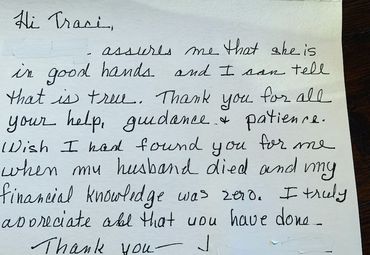 Hi Traci,
assures me that she is
in good hands and I can tell
that is true. Thank you for all
your help, guidance & patience.
Wish I had found you for me
when my husband died and my
financial knowledge was zero. I truly
appreciate all that you have done -
Thank you — J